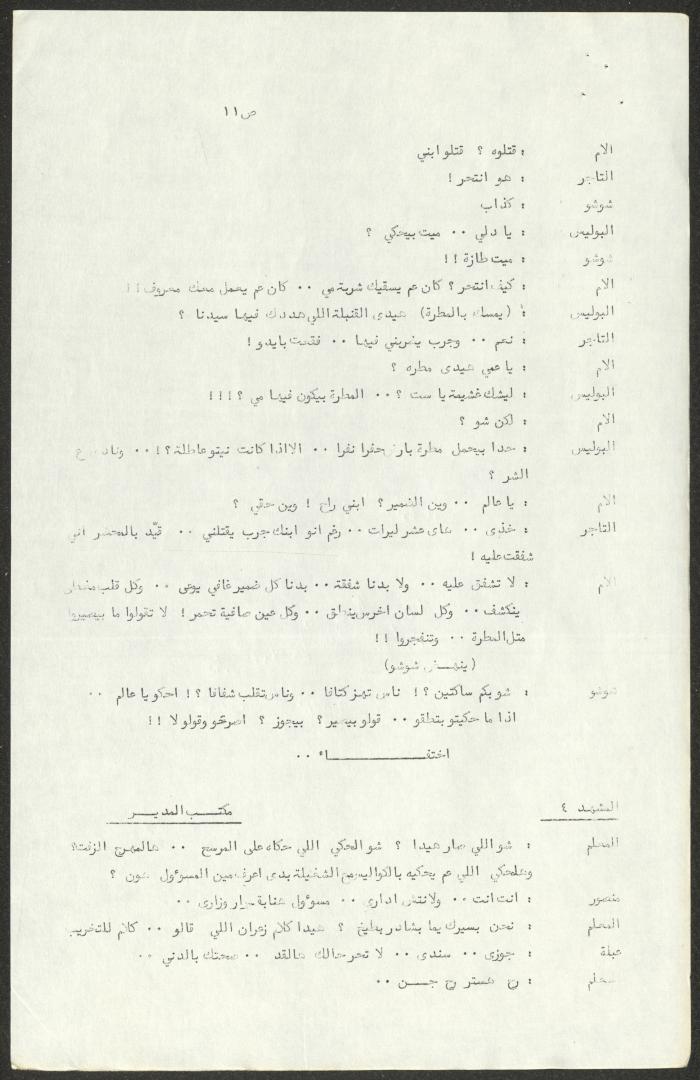 ص ١١
الام : قتلوه ؟ قتلو ابني
التاجر : هو انتحر !
شوشو : كذاب
البوليس : يا دلي ٠٠ ميت بيحكي ؟
شوشو : ميت طازة !!
الام : كيف انتحر ؟ كان عم يسقيك شربة مي ٠٠ كان عم يعمل معك معروف !!
البوليس : ( يمسك بالمطرة ) هيدى القنبلة اللي هددك فيها سيدنا ؟
التاجر : نعم ٠٠ وجرب يضربني فيها ٠٠ فقعت بايدو !
الام : يا عمي هيدى مطره ؟
البوليس : ليشك غشيمة يا ست ؟ ٠٠ المطرة بيكون فيها مي ؟ !!!
الام : لكن شو ؟
البوليس : حدا بيحمل مطرة بارض حفرا نفرا ٠٠ الا اذا كانت نيتو عاطلة ؟! ٠٠
الشر ؟
الام : يا عالم ٠٠ وين الضمير ؟ ابني راح ! وين حقي ؟
التاجر : خذى ٠٠ هاى عشر ليرات ٠٠ رغم انو ابنك جرب يقتلني ٠٠ قيّد بالمحضر اني
شفقت عليه !
الام : لا تشفق عليه ٠٠ ولا بدنا شفقة ٠٠ بدنا كل ضمير غافي يوعى ٠٠ وكل قلب
ينكشف ٠٠ وكل لسان اخرس ينطق ٠٠ وكل عين صافية تحمر ! لا تقولوا ما بيصير
متل المطرة ٠٠ وتنفجروا !!
( ينهض شوشو )
شوشو : شو بكم ساكتين ؟! ناس تهز كتافا ٠٠ وناس تقلب شفافا ؟! احكو يا عالم ٠٠
اذا ما حكيتو بتطقو ٠٠ قولو بيصير ؟ بيجوز ؟ اصرخو وقولو لا !!
اختفــــــاء ٠٠
المشهد ٤ مكتب المدير
المعلم : شو اللي صار هيدا ؟ شو الحكي اللي حكاه على المرسح ٠٠ هالمهرج الزفت؟
وهلحكي اللي عم يحكيه بالكواليس مع الشغيلة بدى اعرف مين المسوؤول هون ؟
منصور : انت انت ٠٠ ولانتاش ادارى ٠٠ مسوؤول عنا بقرار وزارى ٠٠
المعلم : نحن بسيرك يما بشادر بطيخ ؟ هيدا كلام زعران اللي قالو ٠٠ كلام للتخريب
عبلة : جوزى ٠٠ سندى ٠٠ لا تحر حالك هالقد ٠٠ صحتك بالدني ٠٠
معلم : ج هستر ج جـــن ٠٠